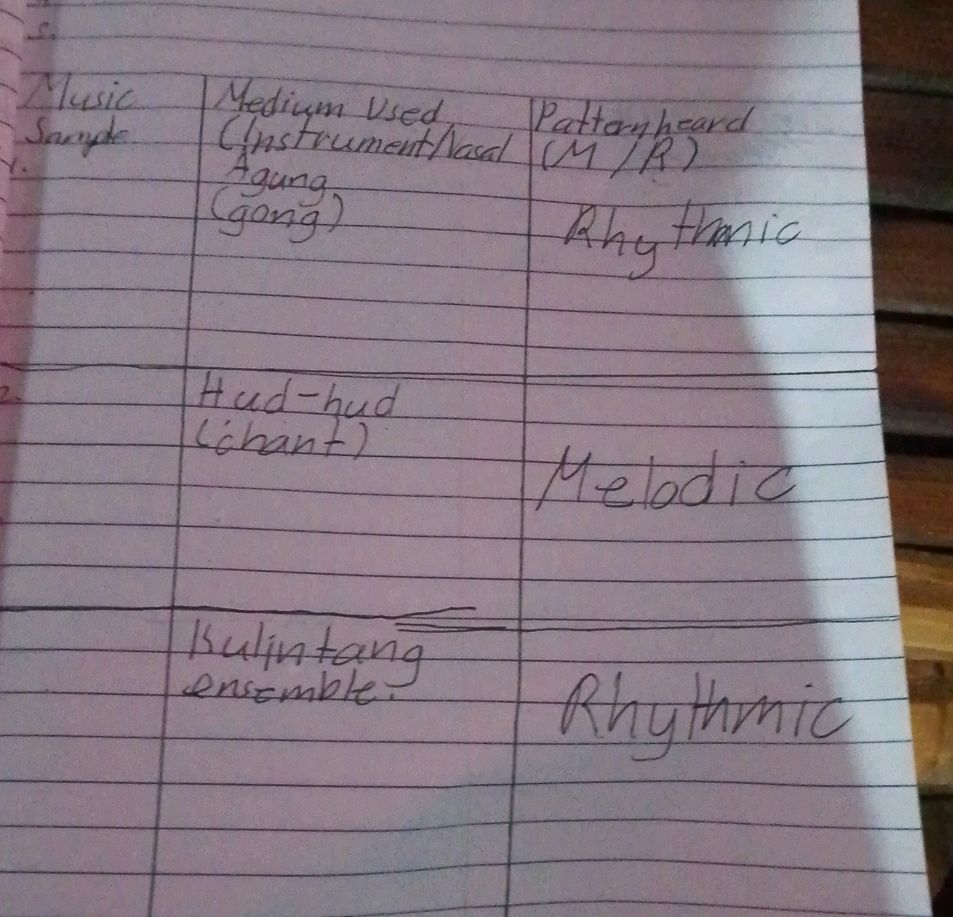 5.
Music Sample
Medium Used (Instrument/Vasal
Pattern heard (M/R)
1.
Agung (gong)
Rhythmic
2.
Hud-hud (chant)
Melodic
Kulintang ensemble.
Rhythmic